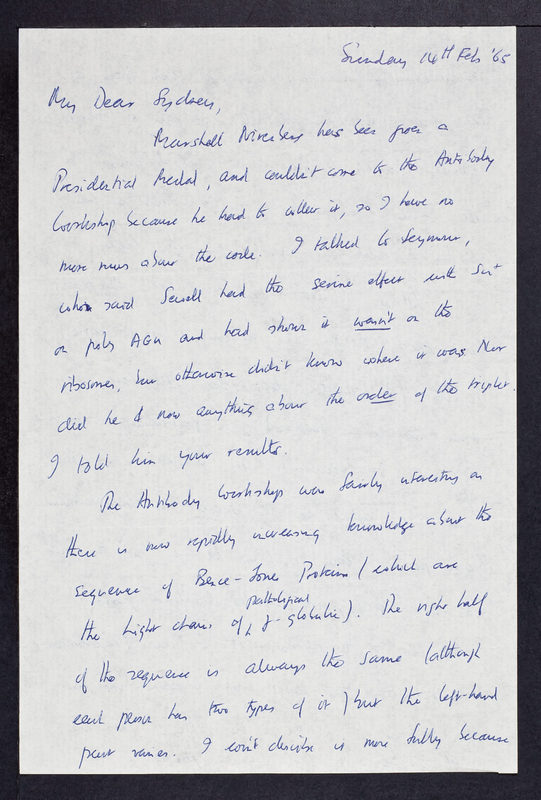 Sunday 14TH Feb '65
My Dear Sydney,
Marshall Nirenberg has been given a
Presidential Medal, and couldn't come to the Antibody
Workshop because he had to collect it, so I have no
more news about the code. I talked to Seymour,
who said Sewell had the serine effect with Su+
on poly AGU and had shown it wasn't on the
ribosomes, but otherwise didn't know where it was. Nor
did he know anything about the order of the triplet.
I told him your results.
The Antibody Workshop was fairly interesting as
there is now rapidly increasing knowledge about the
sequence of Bence-Jones Proteins (which are
the light chains of pathological γ-globulin). The right half
of the sequence is always the same (although
each person has two types of it) but the left-hand
part varies. I won't describe it more fully because